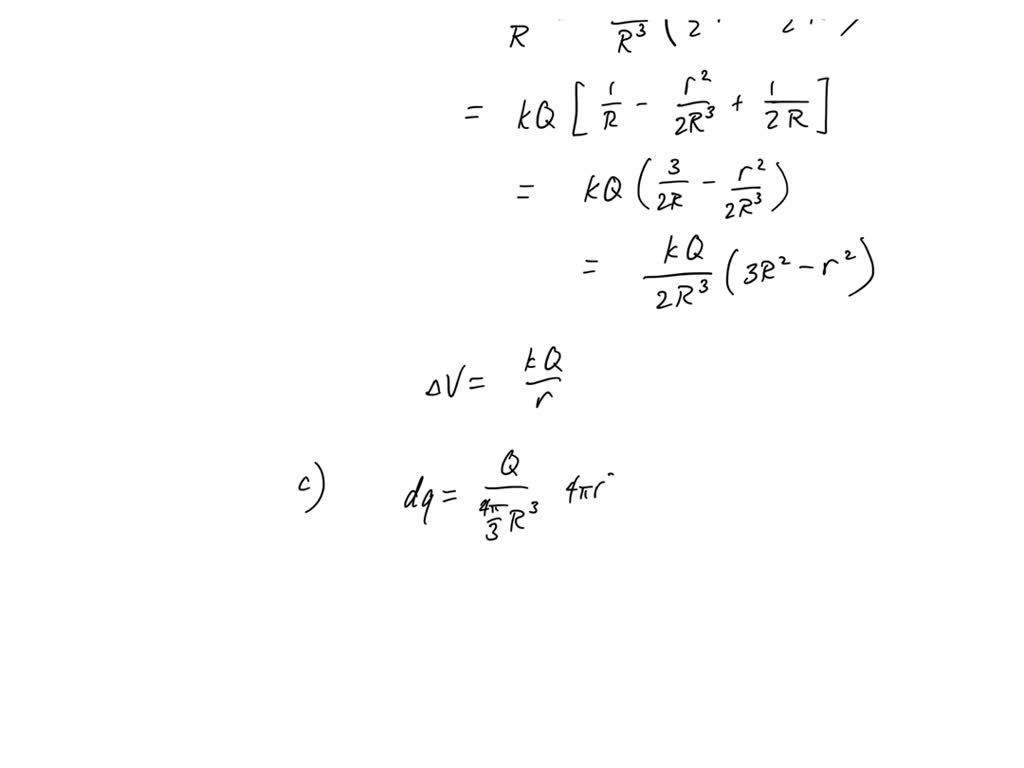 R R³ ( 2
= kQ [ 1/R - r²/2R³ + 1/2R ]
= kQ ( 3/2R - r²/2R³ )
= kQ/2R³ ( 3R² - r² )
ΔV = kQ/r
c) dq = Q/(4π/3 R³) 4πr